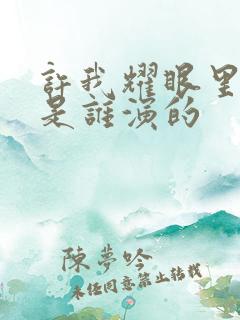 許我耀眼里
是誰演的
陳夢吟
未经同意禁止转载